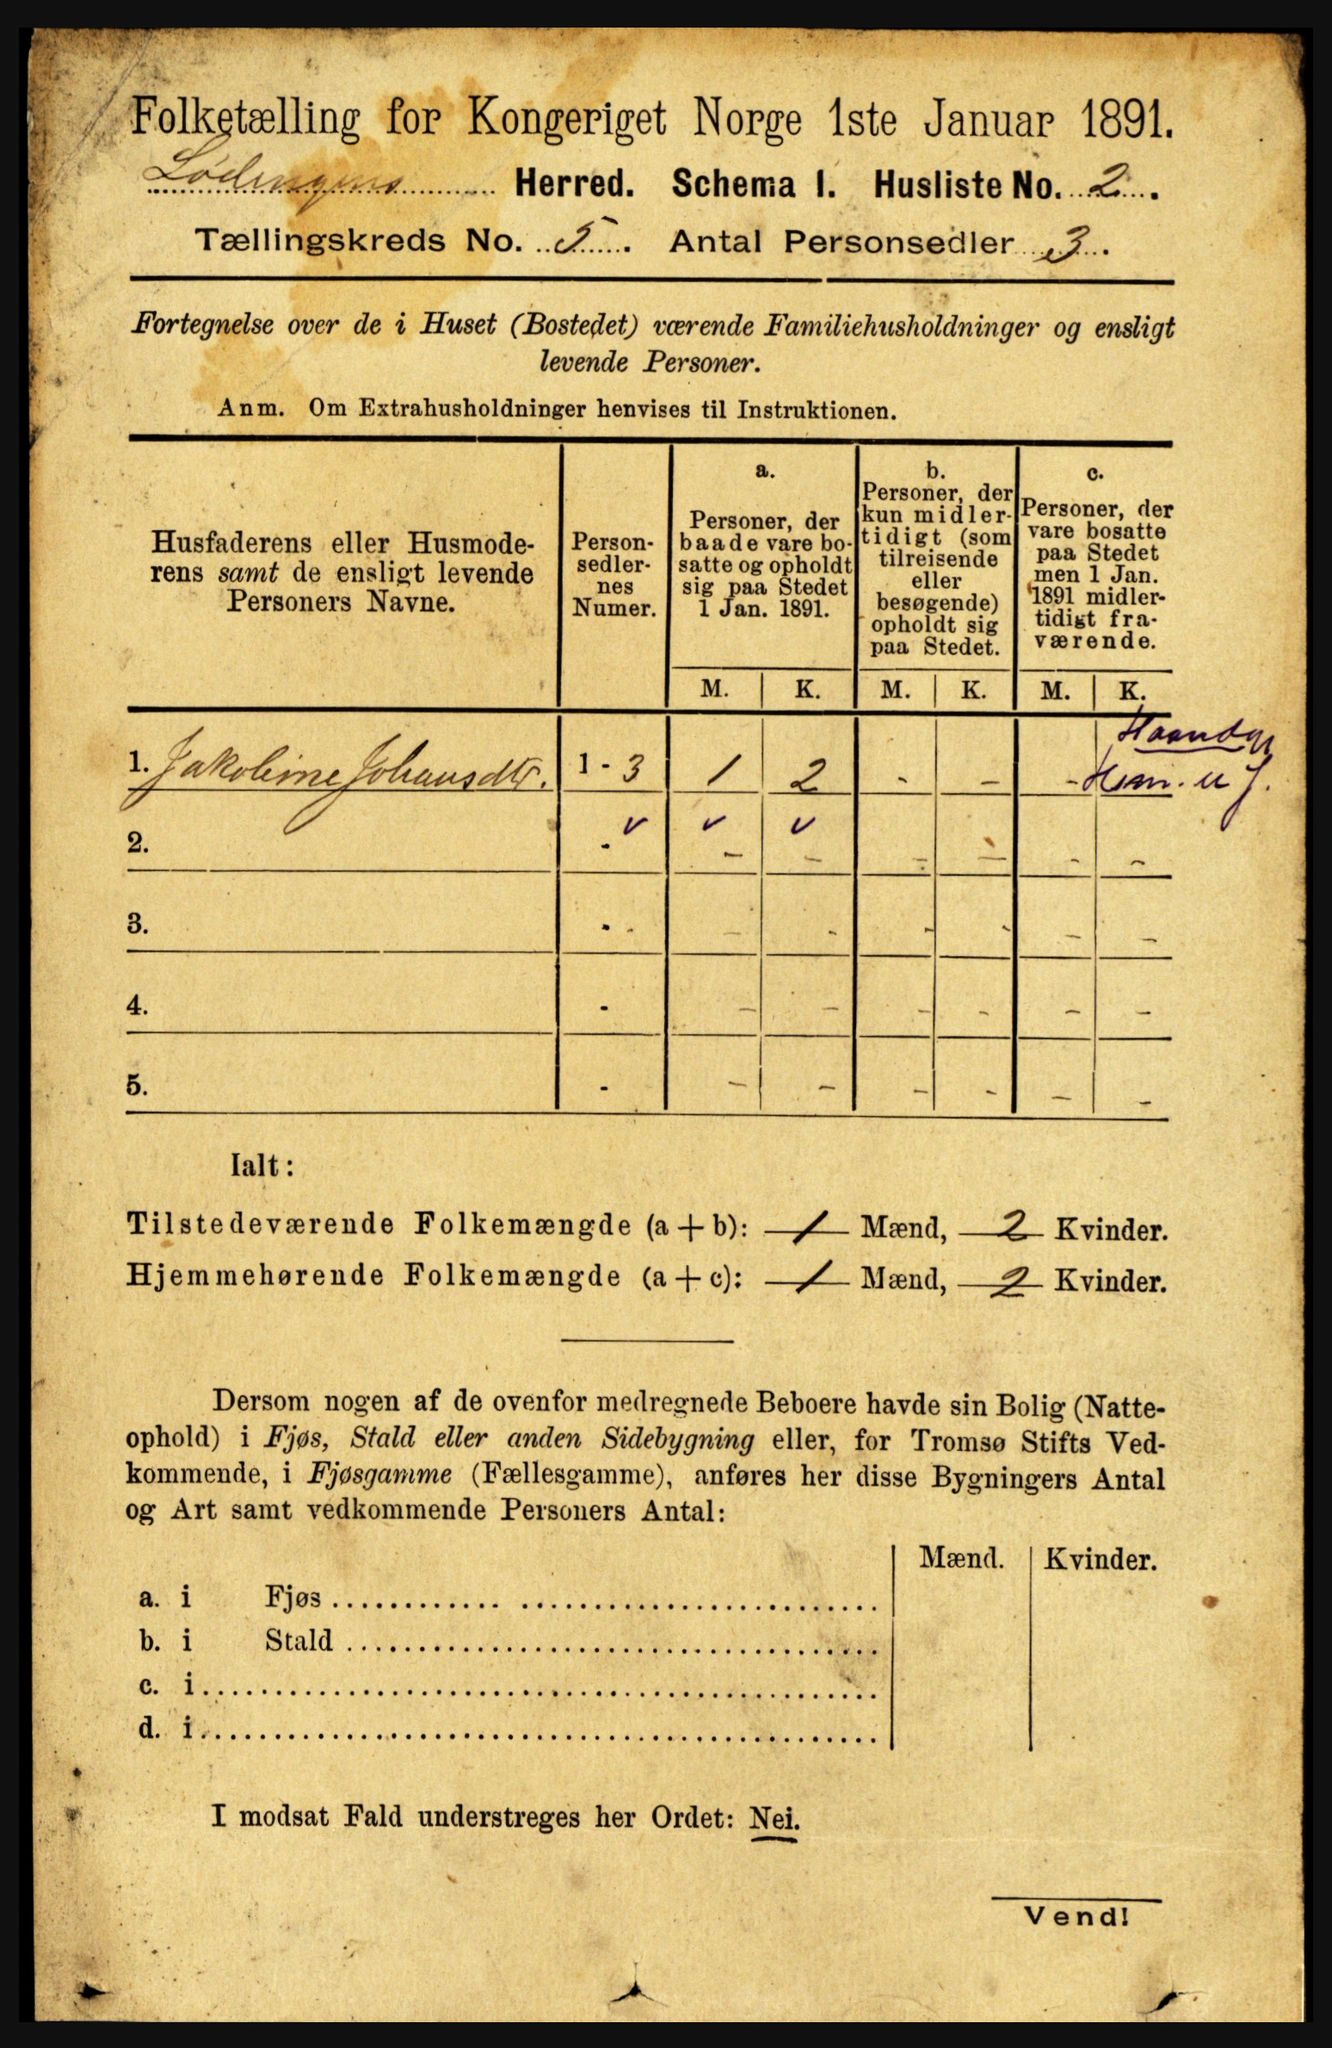 Folketælling for Kongeriget Norge 1ste Januar 1891.
Lødingens Herred. Schema 1. Husliste No. 2.
Tællingskreds No. 5. Antal Personsedler 3.
Fortegnelse over de i Huset (Bostedet) værende Familiehusholdninger og ensligt
levende Personer.
Anm. Om Extrahusholdninger henvises til Instruktionen.
Husfaderens eller Husmode-
rens samt de ensligt levende
Personers Navne.
Person-
sedler-
nes
Numer.
a.
Personer, der
baade vare bo-
satte og opholdt
sig paa Stedet
1 Jan. 1891.
b.
Personer, der
kun midler-
tidigt (som
tilreisende
eller
besøgende)
opholdt sig
paa Stedet.
c.
Personer, der
vare bosatte
paa Stedet
men 1 Jan.
1891 midler-
tidigt fra-
værende.
M. K. M. K. M. K.
1. Jakobine Johansdtr. 1 - 3 1 2 - - -
2. - v v v - - - - - -
3. - - - - - - - -
4. - - - - - - -
5. - - - - - - -
Ialt:
Tilstedeværende Folkemængde (a + b): 1 Mænd, 2 Kvinder.
Hjemmehørende Folkemængde (a + c): 1 Mænd, 2 Kvinder.
Dersom nogen af de ovenfor medregnede Beboere havde sin Bolig (Natte-
ophold) i Fjøs, Stald eller anden Sidebygning eller, for Tromsø Stifts Ved-
kommende, i Fjøsgamme (Fællesgamme), anføres her disse Bygningers Antal
og Art samt vedkommende Personers Antal:
Mænd. Kvinder.
a. i Fjøs
b. i Stald
c. i
d. i
I modsat Fald understreges her Ordet: Nei.
Vend!